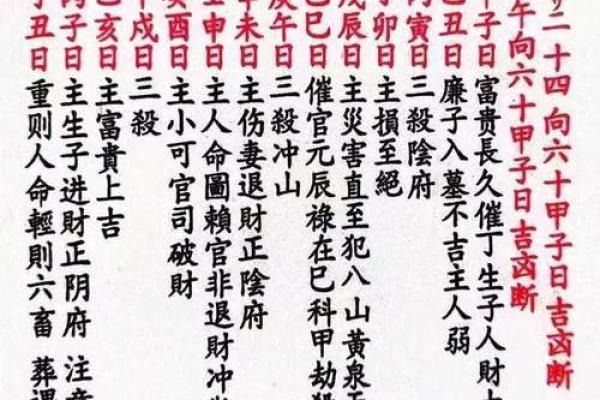 二十四向六十甲子日吉凶断
午向六十甲子日吉凶断
甲子日富贵長久催丁生子人財
丑日廉子入墓不吉主人弱
寅日三殺陰府
卯日主損至絕
戊辰日主災害直至犯八山黄泉
己巳日催官元辰禄在巳科甲劫
庚午日三殺冲山
辛未日主伤妻退財正陰府
壬申日主人命圖賴官非退財冲
癸酉日主小可官司破財
戌日三殺
乙亥日主富貴上吉
丙子日主生子进財正阴府 注意
丑日重则人命輕則六畜 葬